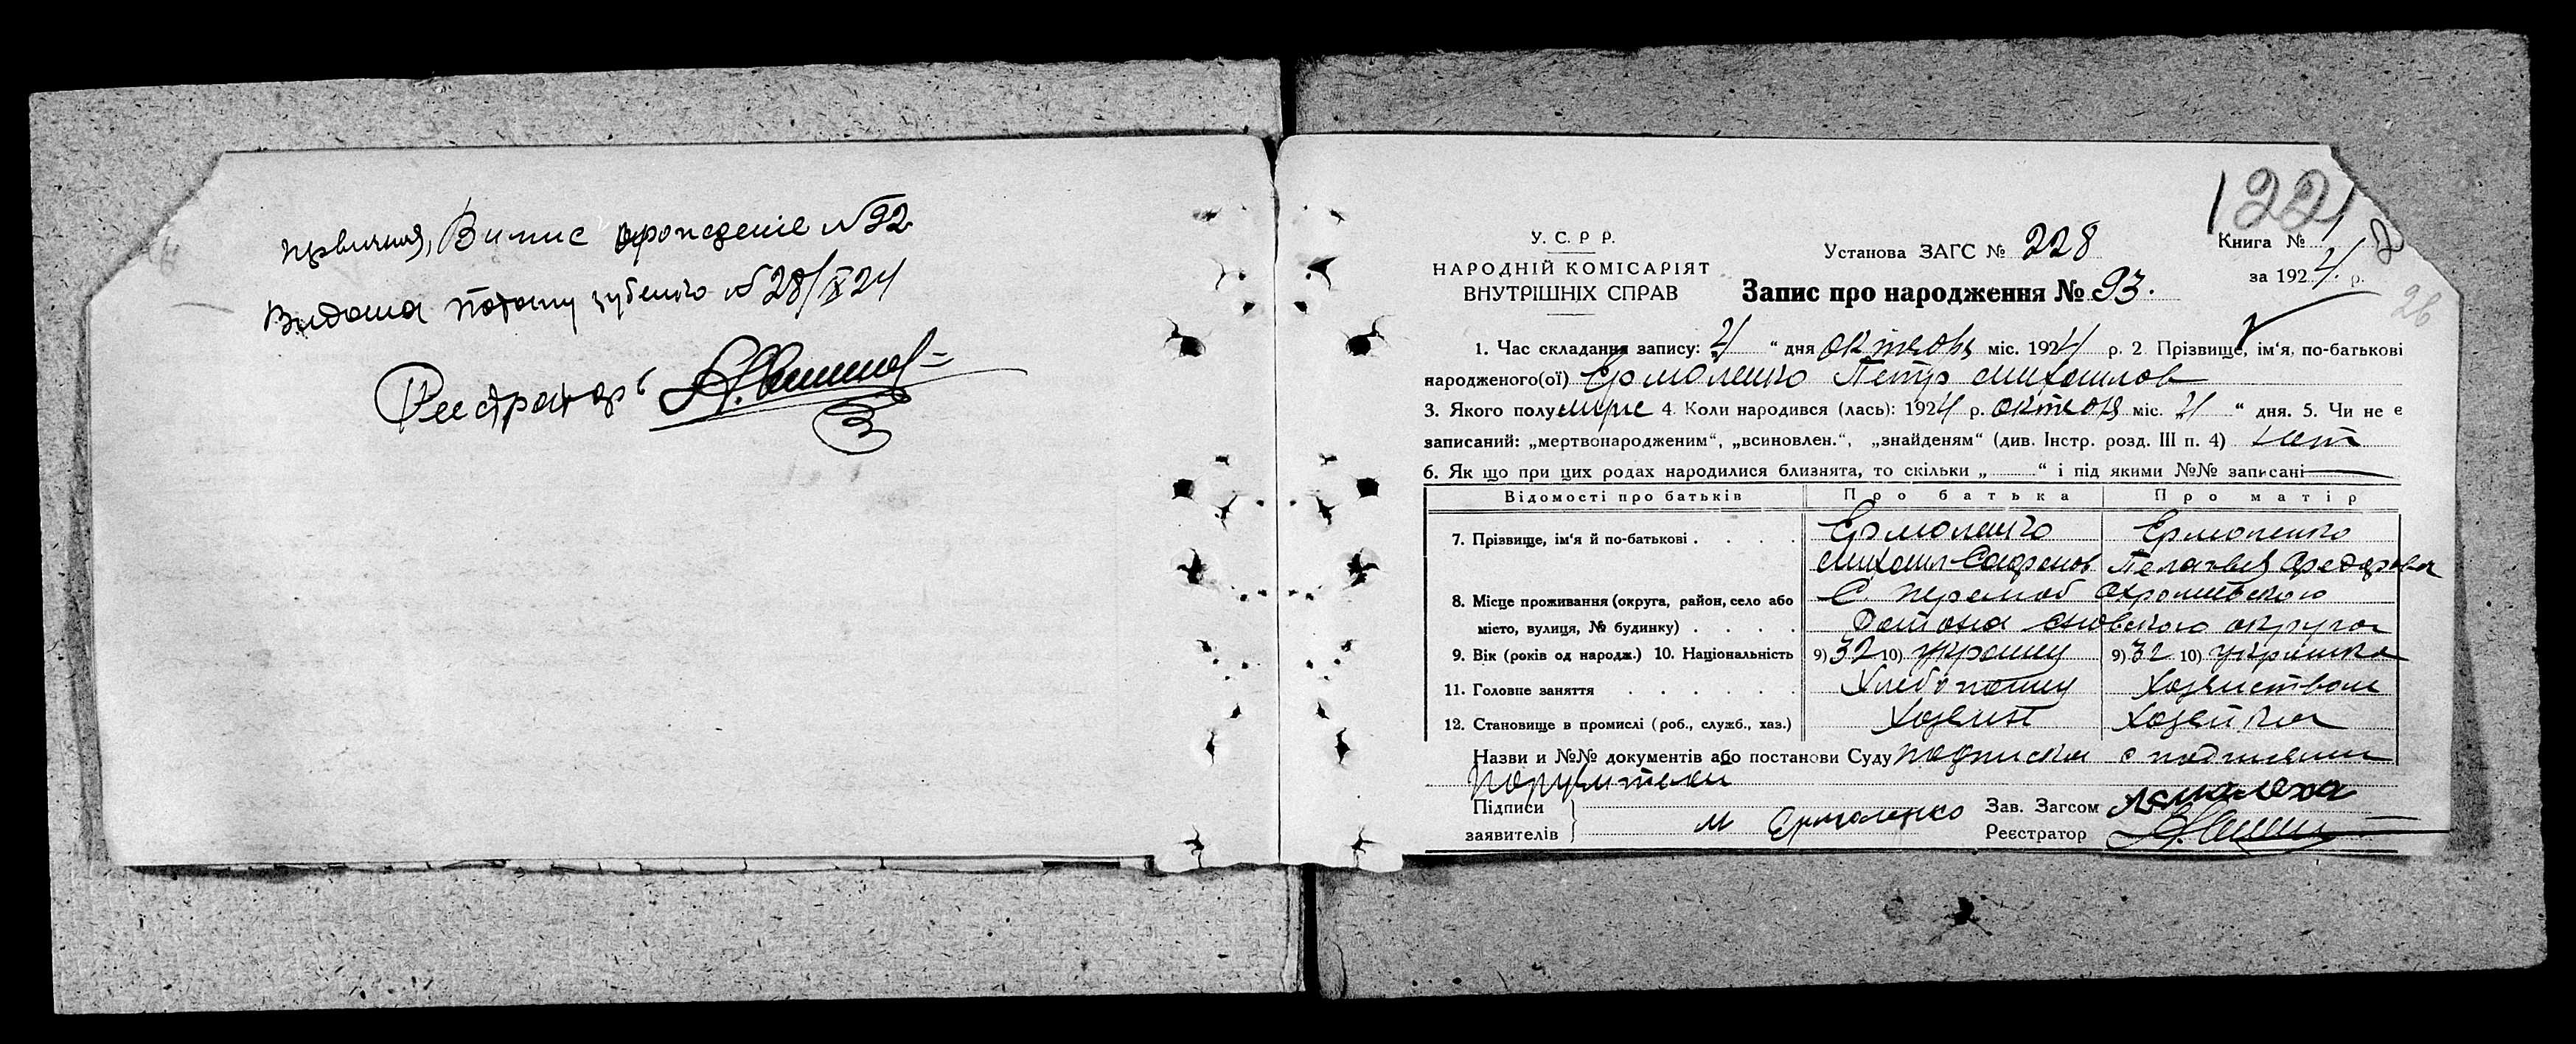 Випис № 92
Видана Потапу № 28/X 24
Реестраторъ
122
У. С. Р Р.
НАРОДНІЙ КОМІСАРІЯТ
ВНУТРІШНІХ СПРАВ
Установа ЗАГС № 228
Запис про народження № 93.
Книга № 1
за 1924 р.
26
1. Час складання запису: 4 “ дня октября міс. 1924 р. 2 Прізвище, ім‘я, по-батькові
народженого(ої) Ермоленко Петр Михаилов
3. Якого полу муже 4. Коли народився (лась): 1924 р. октября міс. 4 “ дня. 5. Чи не є
записаний: „мертвонародженим“, „всиновлен.“, „знайденям“ (див. Інстр. розд. III п. 4) нет
6. Як що при цих родах народилися близнята, то скільки „ “ і під якими №№ записані
Відомості про батьків Про батька Про матір
7. Прізвище, ім‘я й по-батькові . . . . Ермоленко Ермоленко
Михаил Сафронов Пелагея Федоровна
8. Місце проживання (округа, район, село або С.
місто, вулиця, № будинку) . . . . Района Сновского округа
9. Вік (років од народж.) 10. Національність 9) 32 10) украинец 9) 32 10) украинка
11. Головне заняття . . . . . . Хлебопашец хозяйством
12. Становище в промислі (роб., служб., хаз.) Хозяин хозяйка
Назви и №№ документів або постанови Суду подписка с подписями
поручителей
Підписи
заявителів
М Ермоленко
Зав. Загсом
Реєстратор